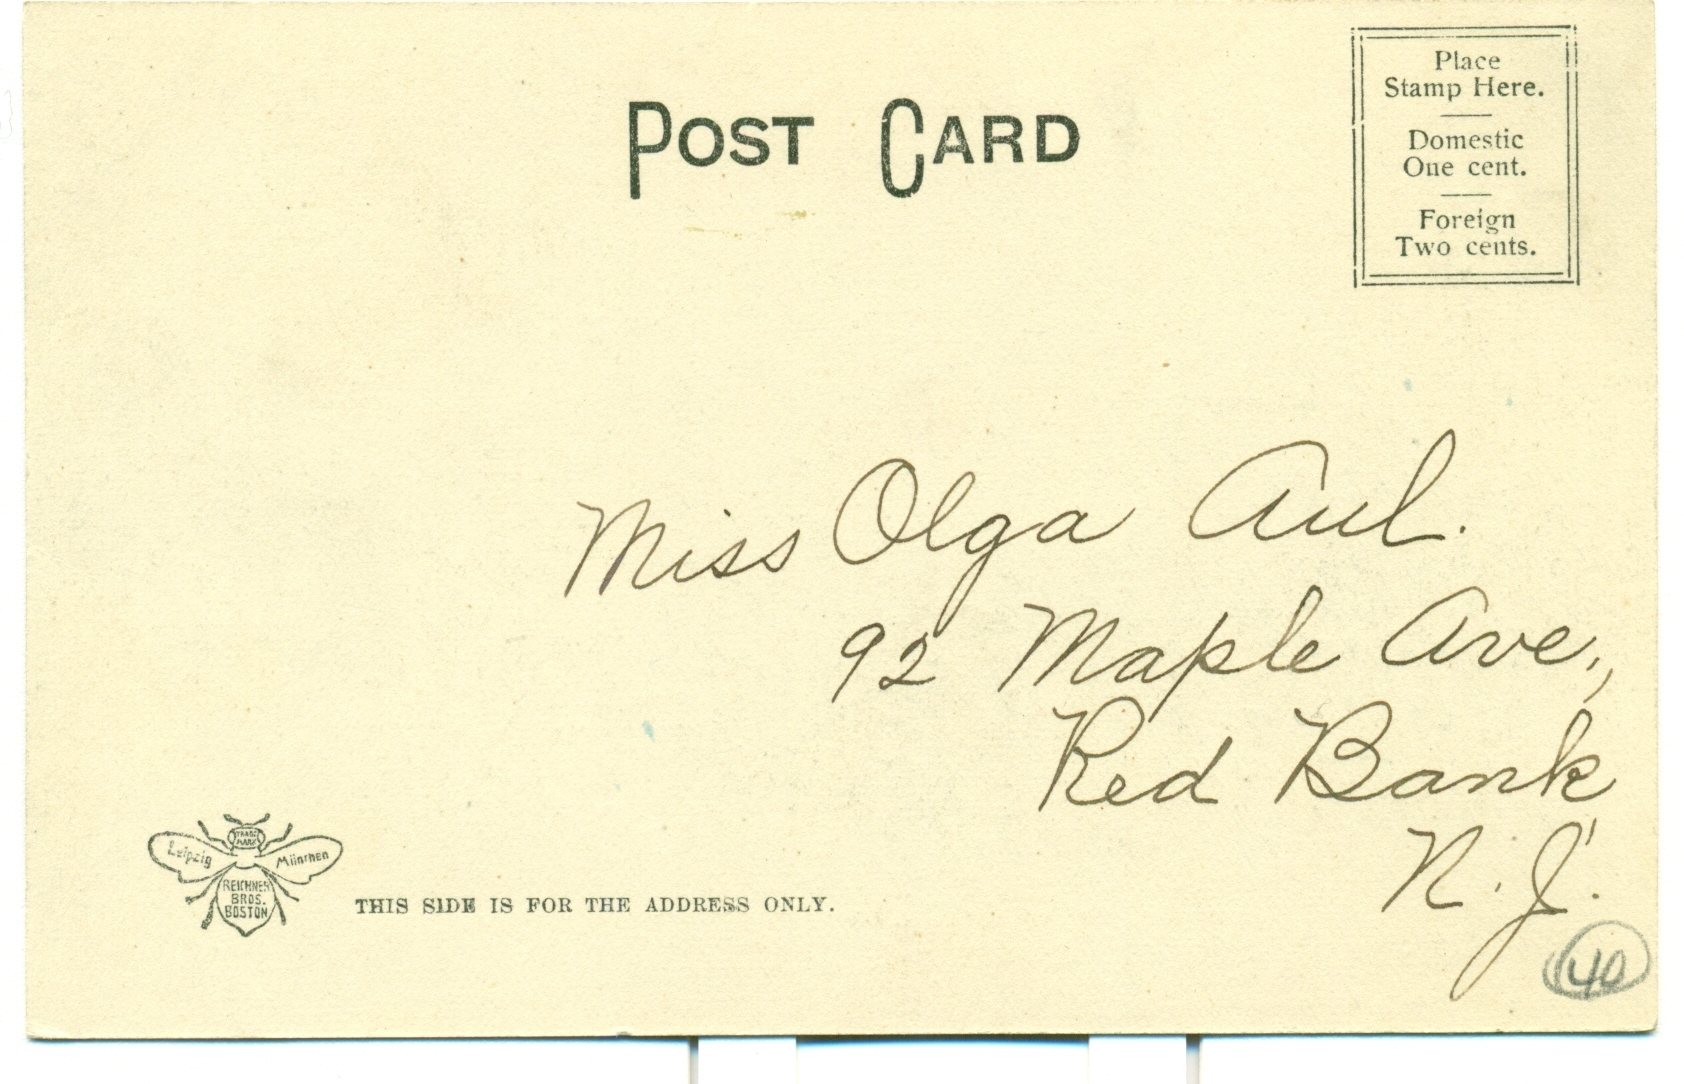 POST CARD
Place
Stamp Here.
Domestic
One cent.
Foreign
Two cents.
Miss Olga Aul.
92 Maple Ave.,
Red Bank
N. J.
40
TRADE
MARK
Leipzig
München
REICHNER
BROS.
BOSTON
THIS SIDE IS FOR THE ADDRESS ONLY.